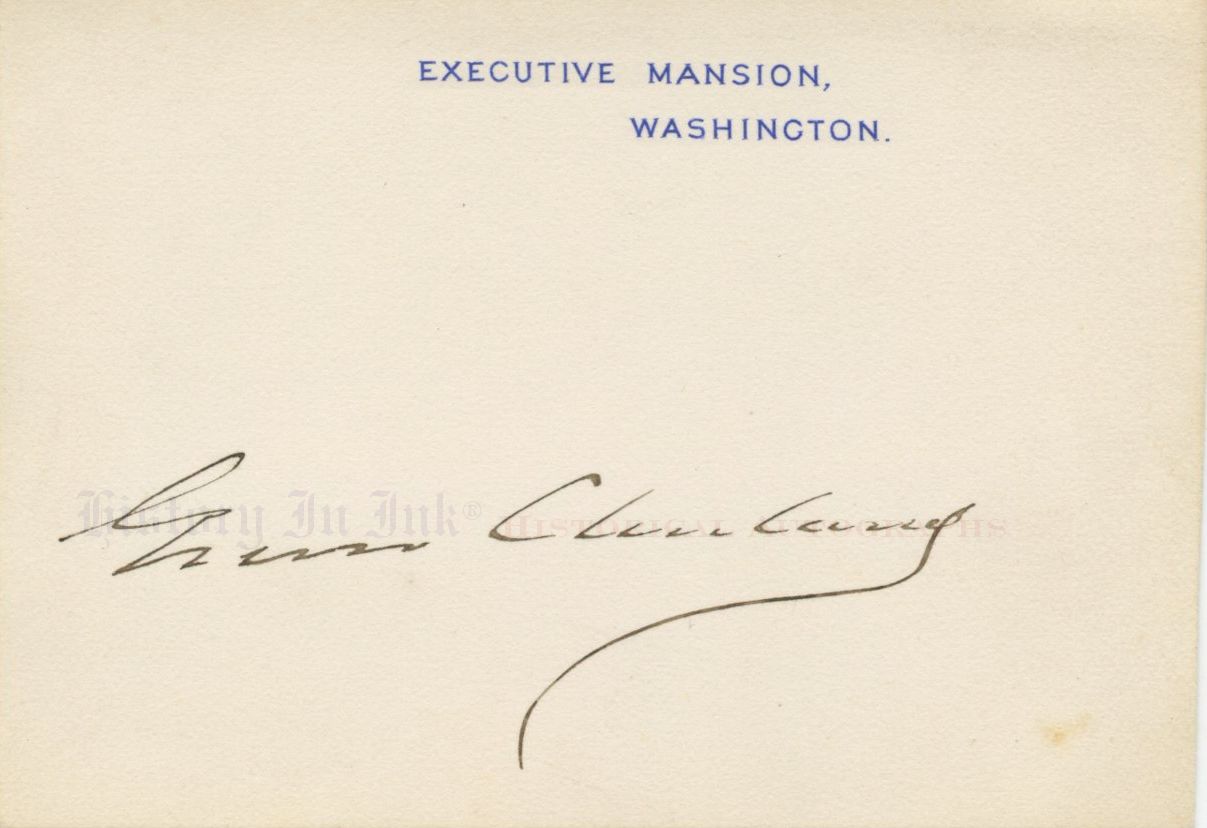 EXECUTIVE MANSION,
WASHINGTON.
Grover Cleveland
History In Ink® HISTORICAL AUTOGRAPHS